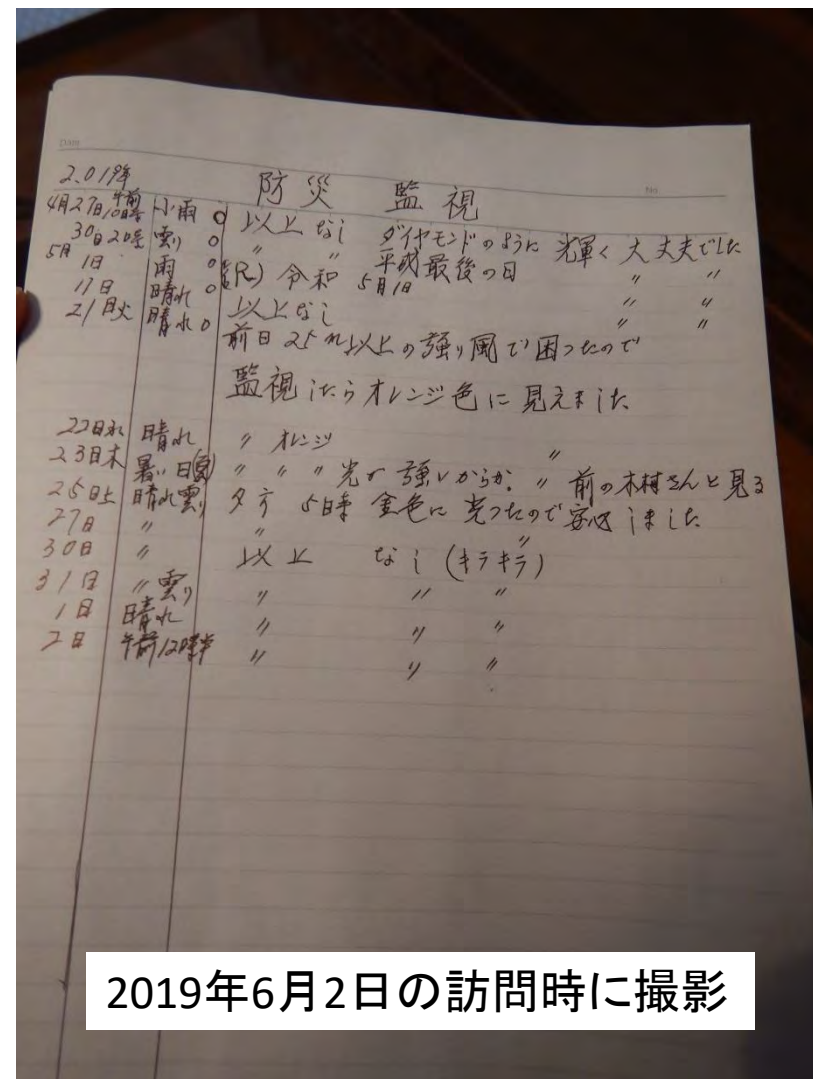 Date
No.
2.019年
防災 監視
4月27日 午前10時 小雨 ○ 以上なし ダイヤモンドのように光輝く大丈夫でした
30日 曇り ○ 〃 〃 平成最後の日 〃 〃
5月1日 雨 ○ (R) 令和 5月1日 〃 〃
17日 晴れ ○ 以上なし 〃 〃
21日火 晴れ ○ 前日25m以上の強り風で困ったので
監視したらオレンジ色に見えました
22日水 晴れ 〃 オレンジ 〃
23日木 暑い日(夏) 〃 〃 〃 光が強いからか. 〃 前の木村さんと見る
25日土 晴れ曇り 夕方 5時 金色に光ったので安心しました
27日 〃 〃 〃
30日 〃 以上 なし (キラキラ)
31日 〃曇り 〃 〃 〃
1日 晴れ 〃 〃 〃
2日 午前12時半 〃 〃 〃
2019年6月2日の訪問時に撮影